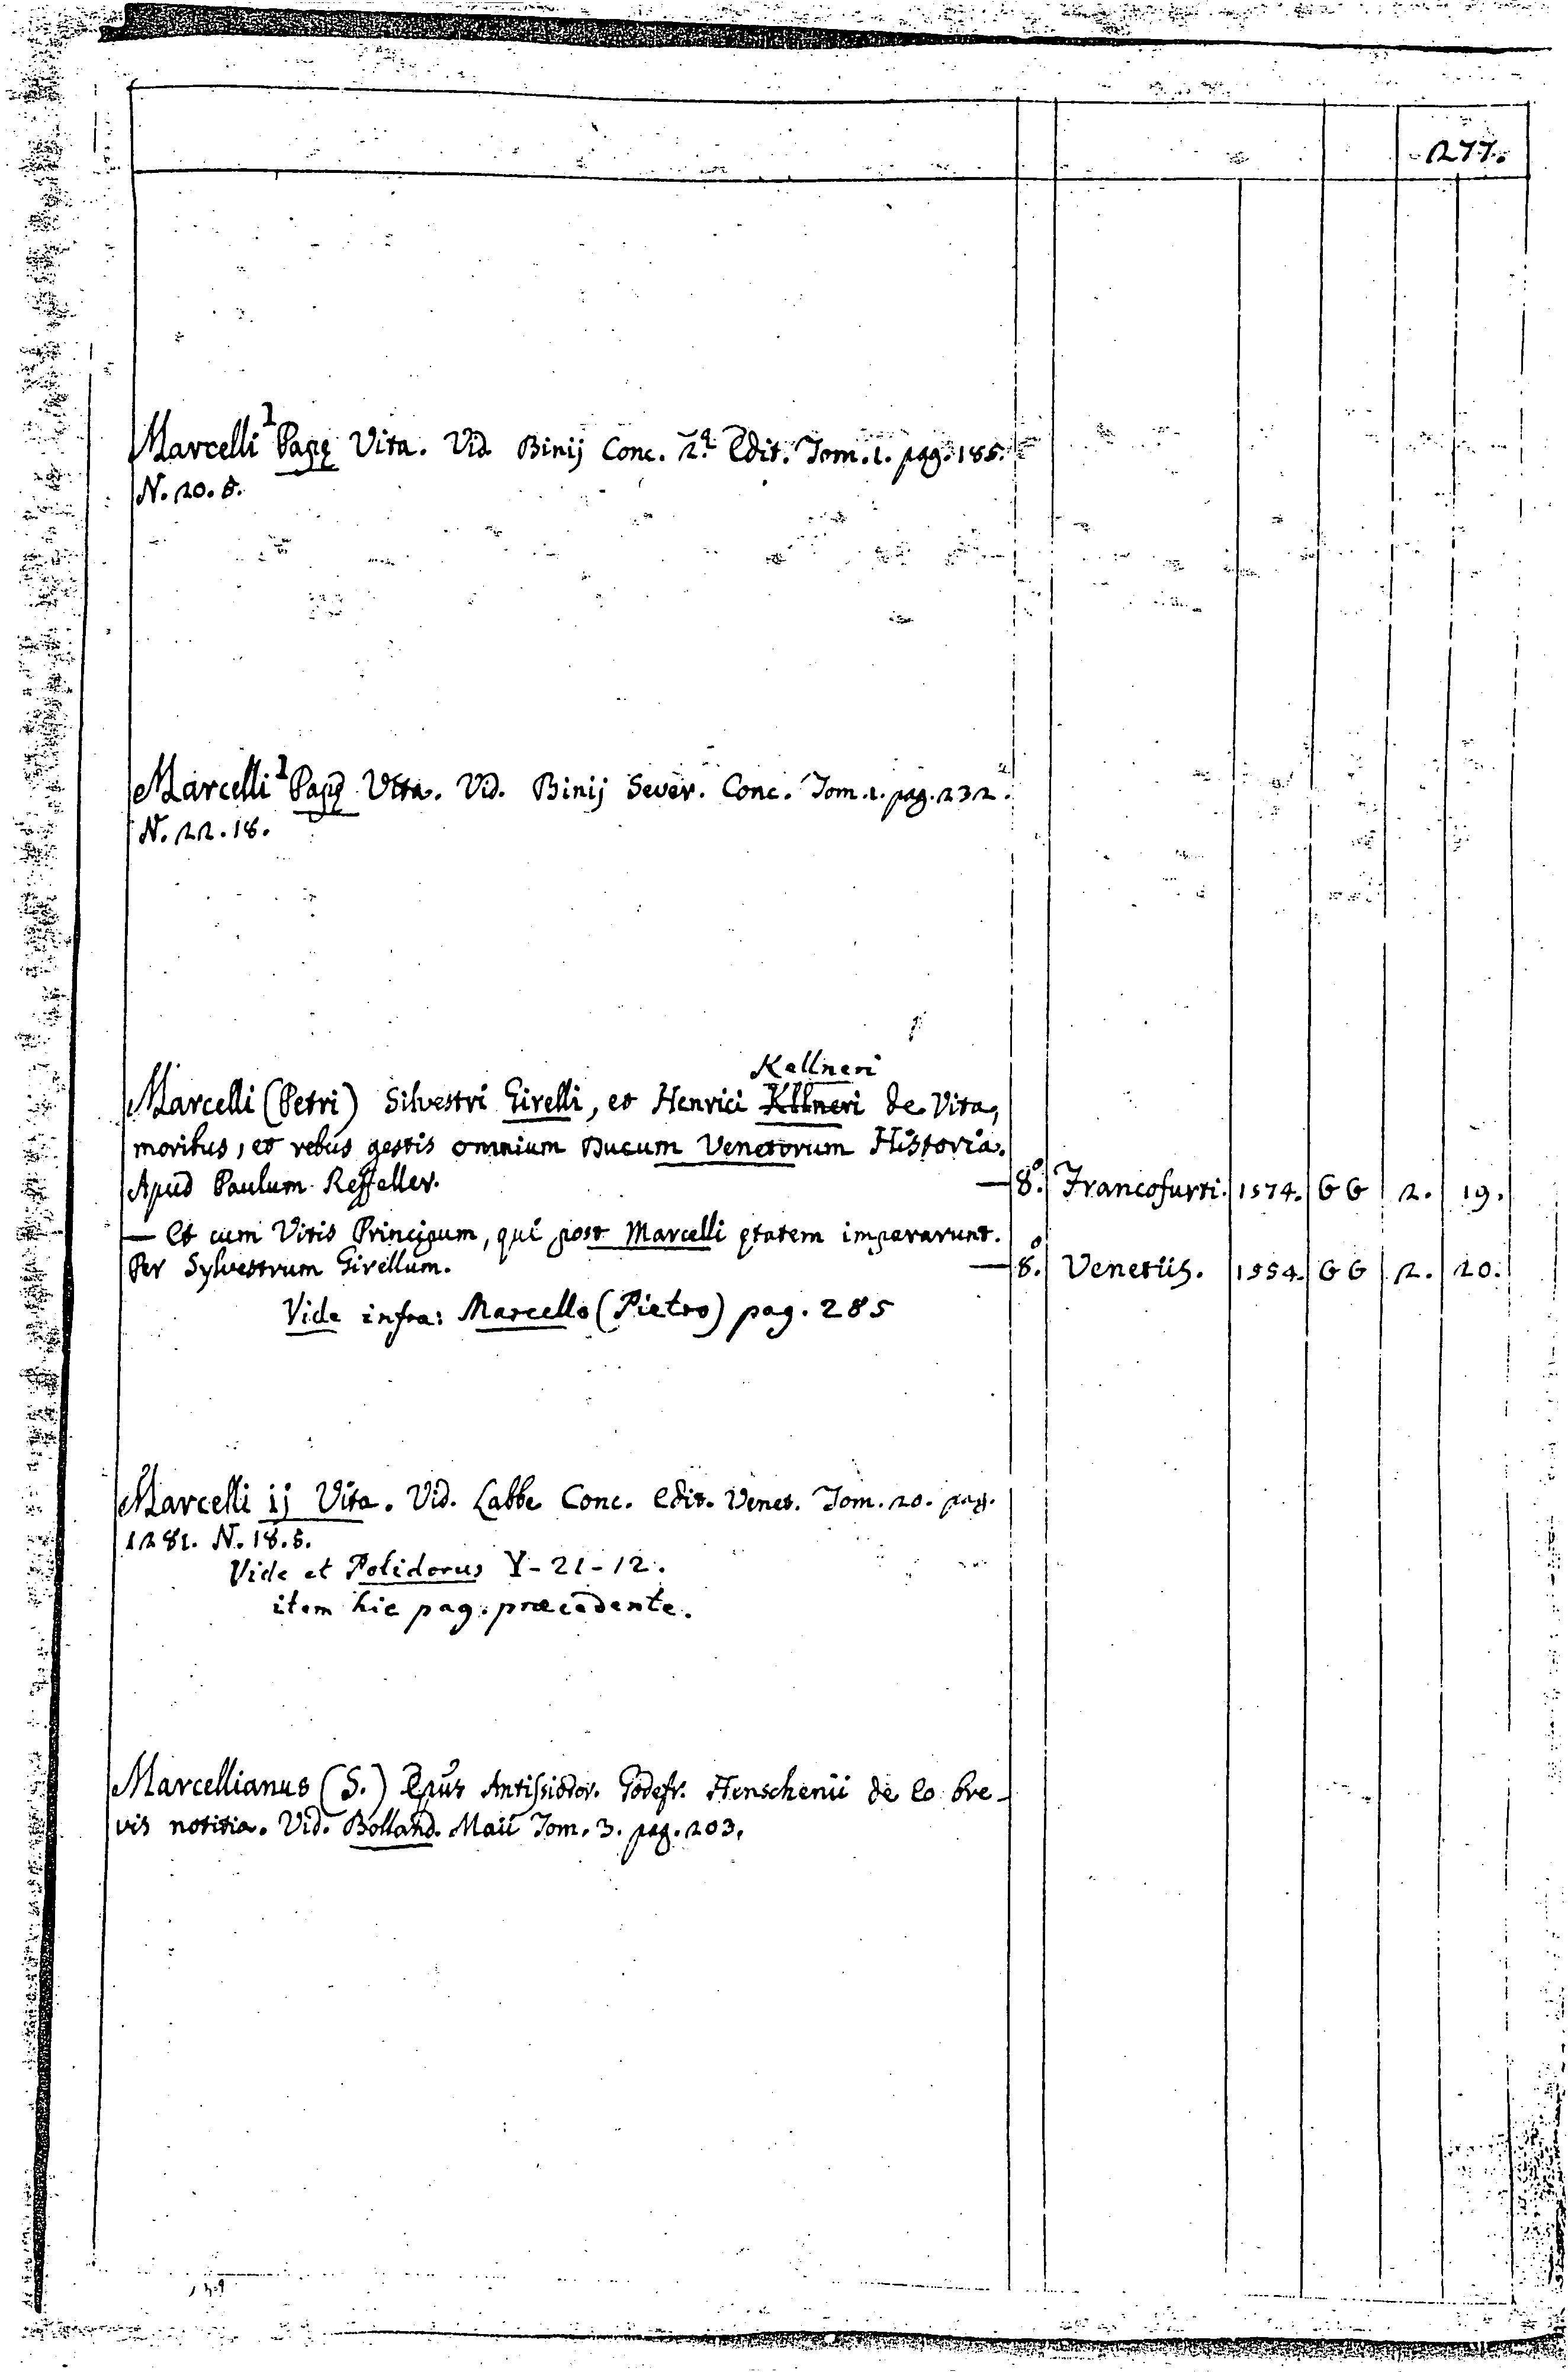 277.
Marcelli 1 Papę Vita. Vid. Binij Conc. 2.ª Edit. Tom. 1. pag. 185.
N. 20. 8.
Marcelli 1 Papę Vita. Vid. Binij Sever. Conc. Tom. 1. pag. 232.
N. 22. 18.
Kellneri
Marcelli (Petri) Silvestri Girelli, et Henrici Kllneri de Vita,
moribus, et rebus gestis omnium Ducum Venetorum Historia.
Apud Paulum Reffeller. — 8.º Francofurti. 1574. GG 2. 19.
— Et cum Vitis Principum, qui post Marcelli ętatem impararunt.
Per Sylvestrum Girellum. — 8.º Venetiis. 1554. GG 2. 20.
Vide infra: Marcello (Pietro) pag. 285
Marcelli ij Vita. Vid. Labbe Conc. Edit. Venet. Tom. 20. pag.
1281. N. 18. 8.
Vide et Polidorus Y-21-12.
item hic pag. præcedente.
Marcellianus (S.) Epũs Antissiodor. Godefr. Henschenii de Eo bre-
vis notitia. Vid. Bolland. Maii Tom. 3. pag. 203.